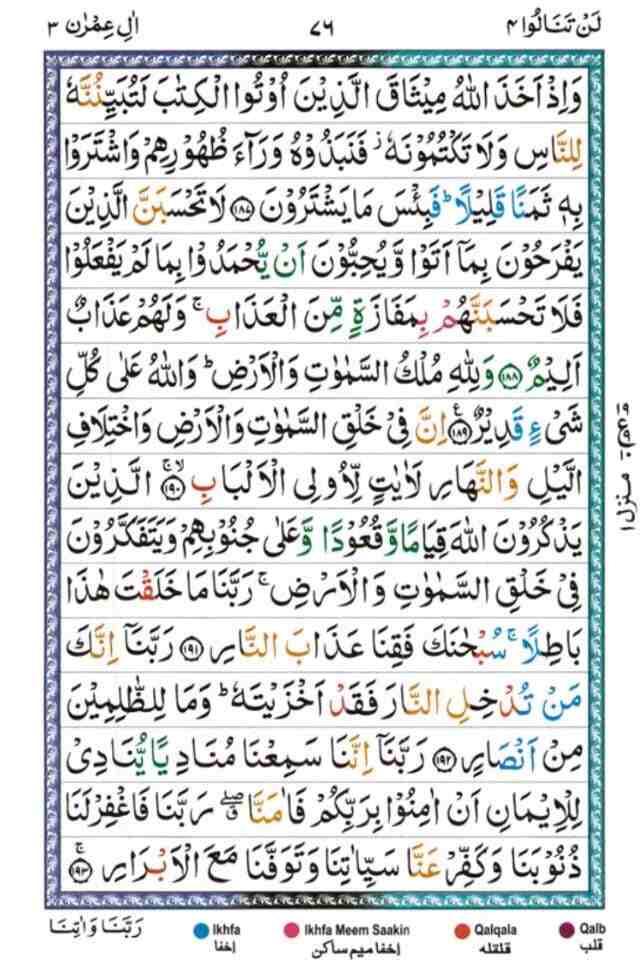 لَنْ تَنَالُوا ٤ ٧٦ اٰلِ عِمْرٰن ٣
وَاِذْ اَخَذَ اللّٰهُ مِيْثَاقَ الَّذِيْنَ اُوْتُوا الْكِتٰبَ لَتُبَيِّنُنَّهٗ
لِلنَّاسِ وَلَا تَكْتُمُوْنَهٗ ز فَنَبَذُوْهُ وَرَآءَ ظُهُوْرِهِمْ وَاشْتَرَوْا
بِهٖ ثَمَنًا قَلِيْلًا ؕ فَبِئْسَ مَا يَشْتَرُوْنَ ﴿۱۸۷﴾ لَا تَحْسَبَنَّ الَّذِيْنَ
يَفْرَحُوْنَ بِمَاۤ اَتَوْا وَّيُحِبُّوْنَ اَنْ يُّحْمَدُوْا بِمَا لَمْ يَفْعَلُوْا
فَلَا تَحْسَبَنَّهُمْ بِمَفَازَةٍ مِّنَ الْعَذَابِ ۚ وَلَهُمْ عَذَابٌ
اَلِيْمٌ ﴿۱۸۸﴾ وَلِلّٰهِ مُلْكُ السَّمٰوٰتِ وَالْاَرْضِ ؕ وَاللّٰهُ عَلٰى كُلِّ
شَىْءٍ قَدِيْرٌ ﴿۱۸۹﴾ ع اِنَّ فِىْ خَلْقِ السَّمٰوٰتِ وَالْاَرْضِ وَاخْتِلَافِ
الَّيْلِ وَالنَّهَارِ لَاٰيٰتٍ لِّاُولِى الْاَلْبَابِ ﴿۱۹۰﴾ ۚۙ الَّذِيْنَ
يَذْكُرُوْنَ اللّٰهَ قِيَامًا وَّقُعُوْدًا وَّعَلٰى جُنُوْبِهِمْ وَيَتَفَكَّرُوْنَ
فِىْ خَلْقِ السَّمٰوٰتِ وَالْاَرْضِ ۚ رَبَّنَا مَا خَلَقْتَ هٰذَا
بَاطِلًا ۚ سُبْحٰنَكَ فَقِنَا عَذَابَ النَّارِ ﴿۱۹۱﴾ رَبَّنَاۤ اِنَّكَ
مَنْ تُدْخِلِ النَّارَ فَقَدْ اَخْزَيْتَهٗ ؕ وَمَا لِلظّٰلِمِيْنَ
مِنْ اَنْصَارٍ ﴿۱۹۲﴾ رَبَّنَاۤ اِنَّنَا سَمِعْنَا مُنَادِيًا يُّنَادِىْ
لِلْاِيْمَانِ اَنْ اٰمِنُوْا بِرَبِّكُمْ فَاٰمَنَّا ۖق رَبَّنَا فَاغْفِرْ لَنَا
ذُنُوْبَنَا وَكَفِّرْ عَنَّا سَيِّاٰتِنَا وَتَوَفَّنَا مَعَ الْاَبْرَارِ ﴿۱۹۳﴾ ۚ
منزل ۱
رَبَّنَا وَاٰتِنَا
Ikhfa Ikhfa Meem Saakin Qalqala Qalb
إخفا إخفا ميم ساكن قلقله قلب